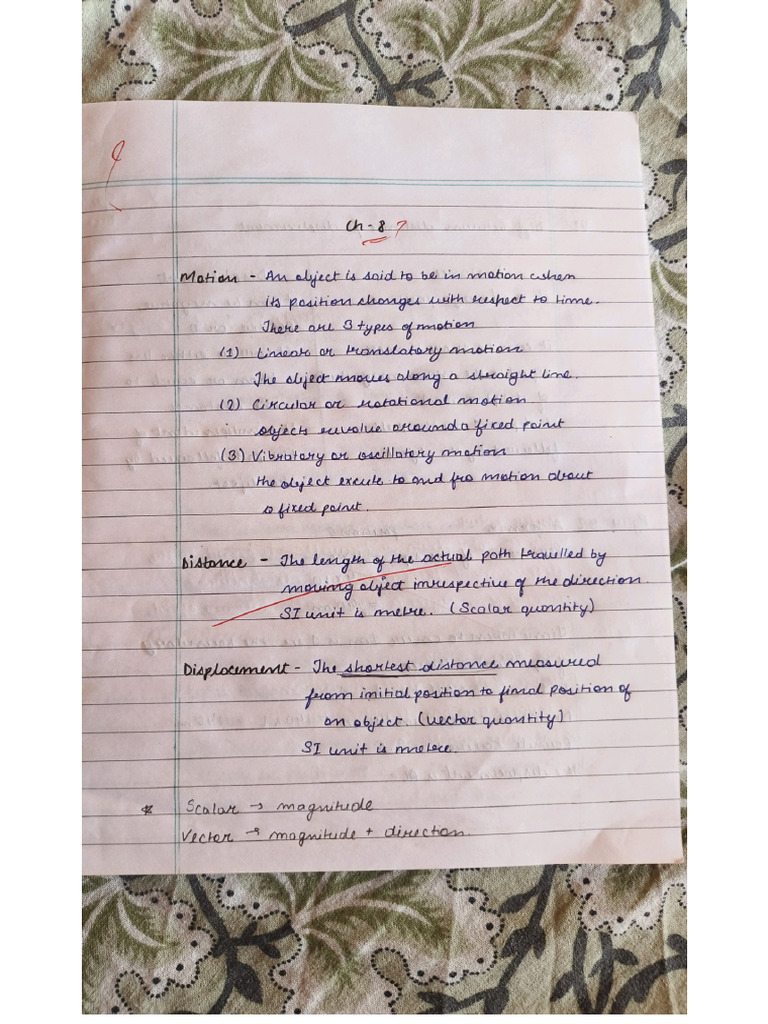 Ch - 8
Motion - An object is said to be in motion when
its position changes with respect to time.
There are 3 types of motion
(1) Linear or translatory motion
The object moves along a straight line.
(2) Circular or rotational motion
objects revolve around a fixed point
(3) Vibratory or oscillatory motion
the object excute to and fro motion about
a fixed point.
Distance - The length of the actual path travelled by
moving object irrespective of the direction.
SI unit is metre. (Scalar quantity)
Displacement - The shortest distance measured
from initial position to final position of
an object. (vector quantity)
SI unit is metre.
* Scalar → magnitude
Vector → magnitude + direction.